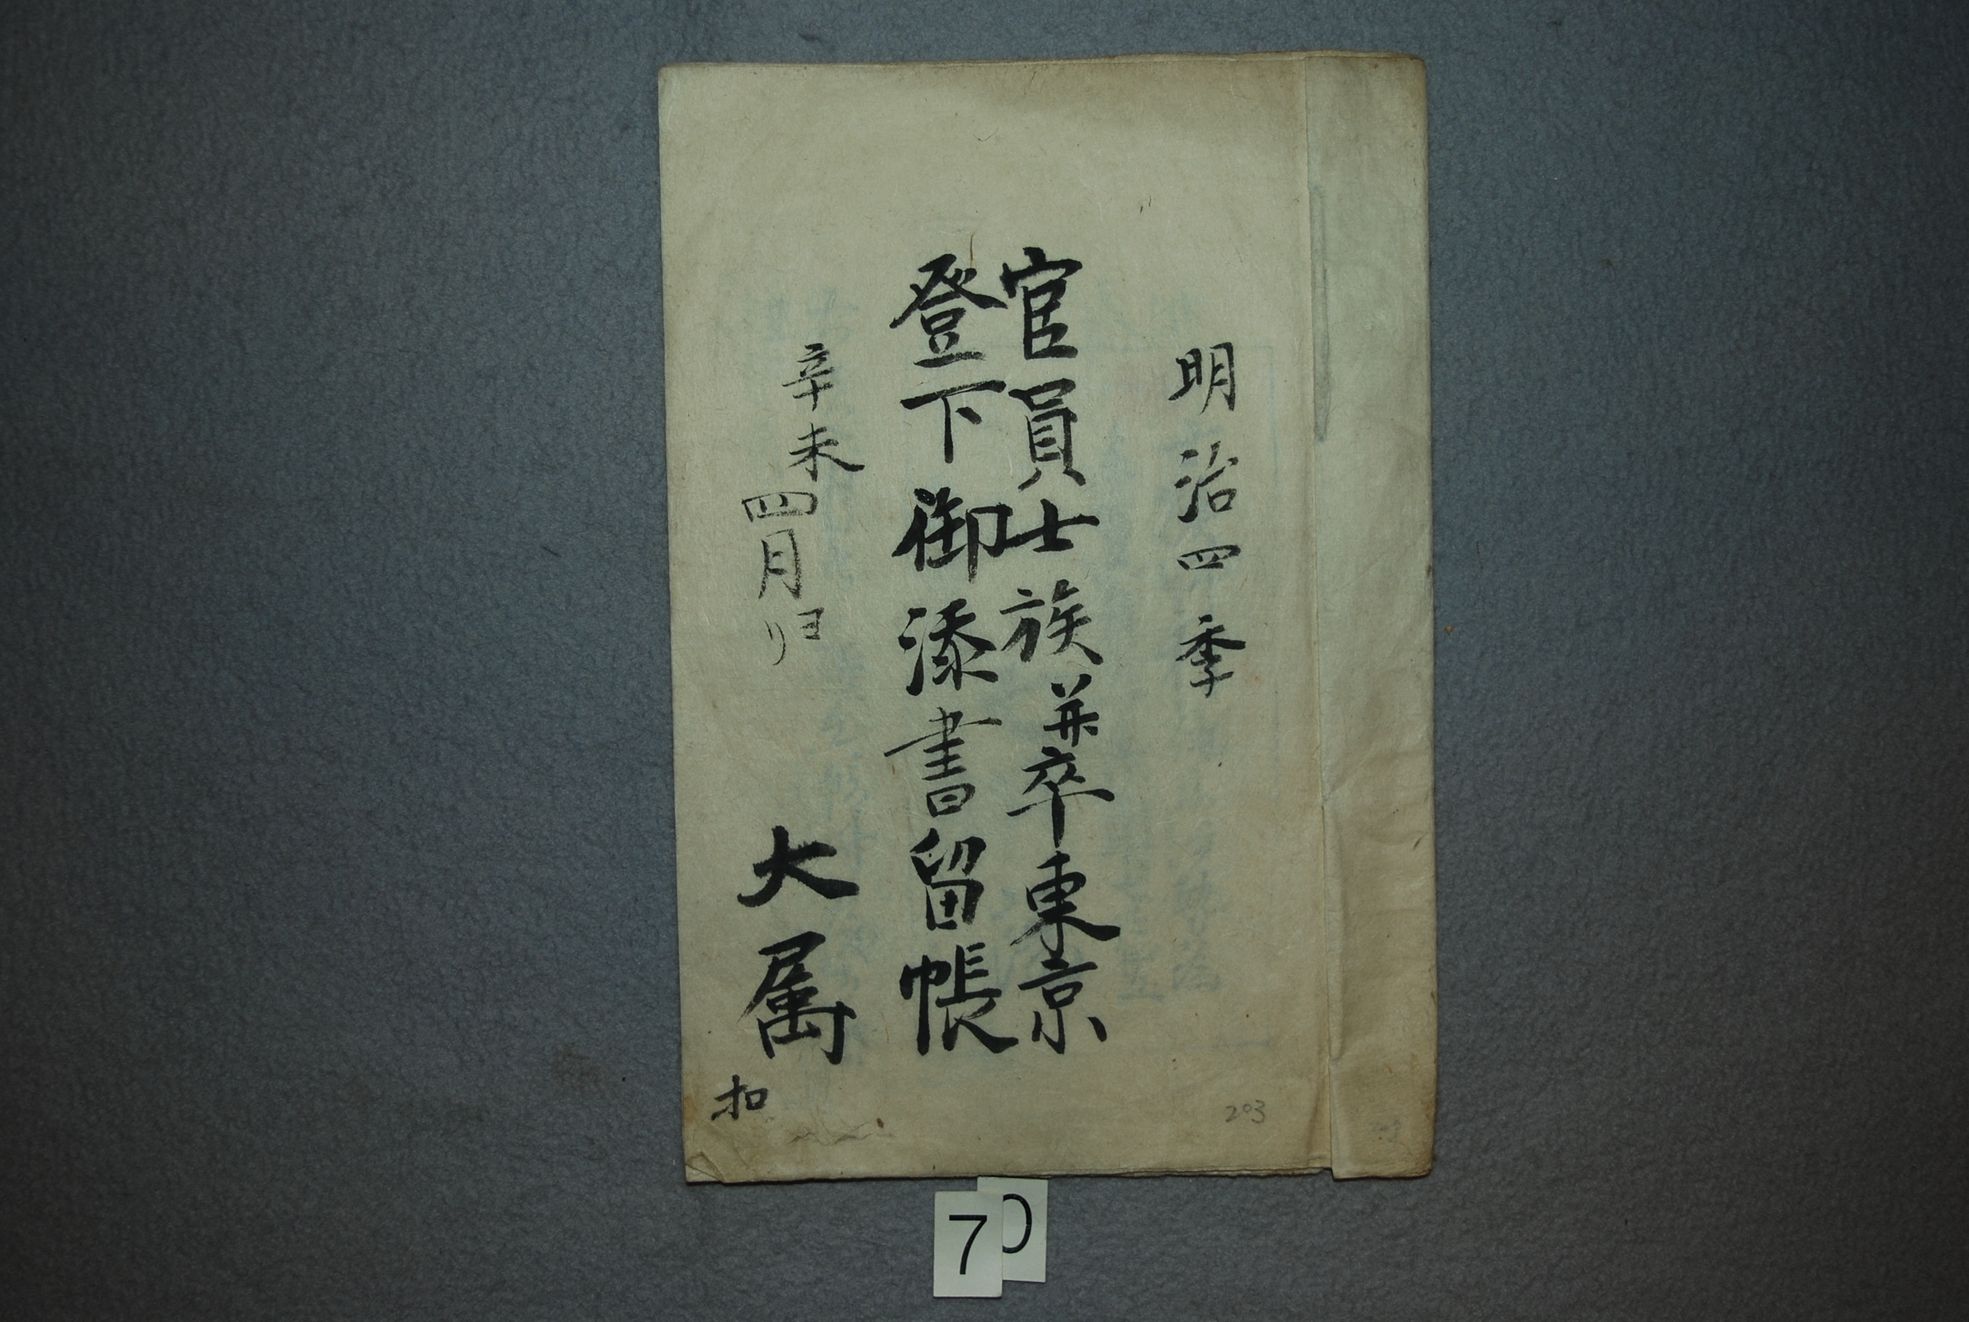 明治四季
官員士族并卒東京
登下御添書留帳
辛未四月ヨリ
大属
扣
203
70